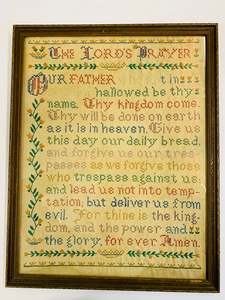 THE LORD'S PRAYER
OUR FATHER t in
hallowed be thy
name. Thy kingdom come.
Thy will be done on earth
as it is in heaven. Give us
this day our daily bread,
and forgive us our tres-
passes as we forgive those
who trespass against us
and lead us not into temp-
tation; but deliver us from
evil. For thine is the king-
dom, and the power and
the glory, for ever. Amen.